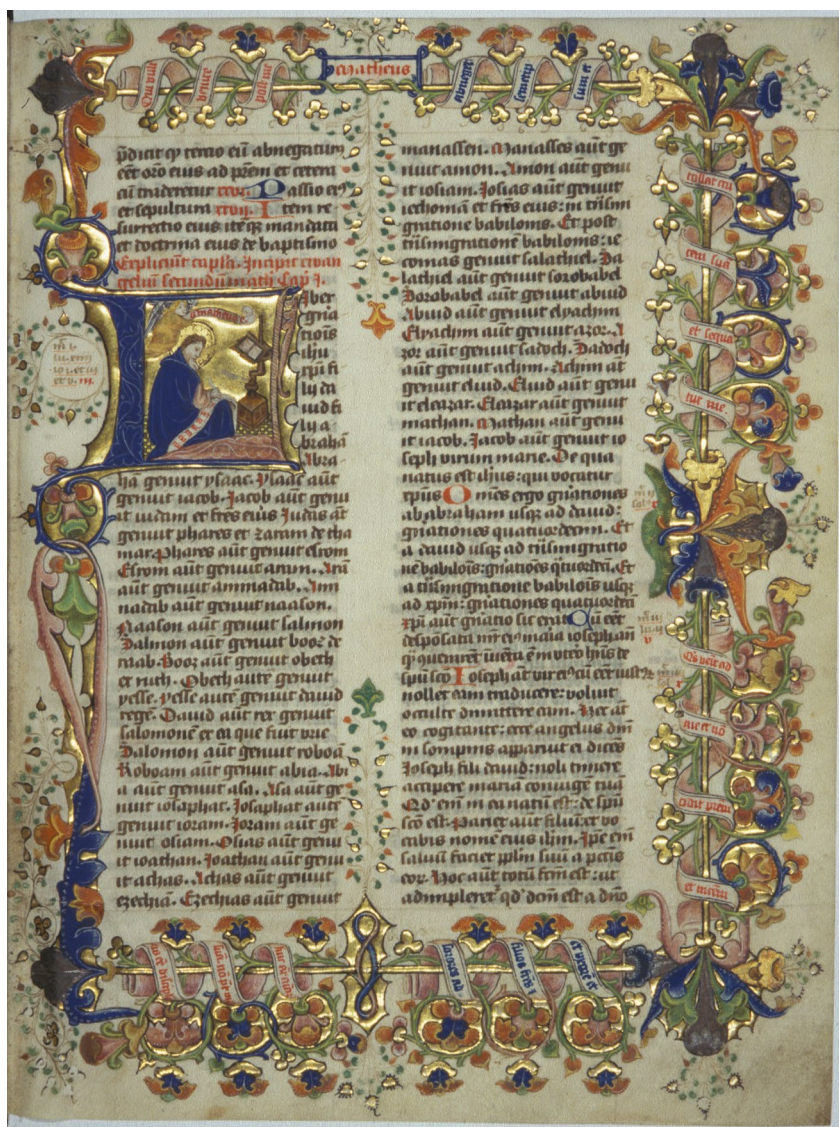 Qui vult
venire
post me
Matheus
abneget
semetip
sum et
p̄dicit q̄ tercio eū abnegatum
eēt oro eius ad prēm et cetera
cū traderetur xxvi. Passio eiꝰ
et sepultura xxvij. Item re
surrectio eius iteq̄ mandata
et doctrina eius de baptismo
Expliciūt capla. Incipit ewan
geliū secundū math̄ Cap̄ I.
matheus
Liber
gn̄a
tiois
ihū
xp̄i fi
lij da
uid fi
lij a
braham̄
Abra
ha genuit ysaac. Ysaac aūt
genuit iacob. Jacob aūt genu
it iudam et fr̄es eius Judas aūt
genuit phares et zaram de tha
mar. Phares aūt genuit esrom
Esrom aūt genuit aram. Arā
aūt genuit ammadab. Ami
nadab aūt genuit naason.
Naason aūt genuit salmon
Salmon aūt genuit booz de
raab. Booz aūt genuit obeth
ex ruth. Obeth autē genuit
yesse. Yesse autē genuit dauid
regē. Dauid aūt rex genuit
salomonē ex ea que fuit vrie
Salomon aūt genuit roboā
Roboam aūt genuit abia. Abi
a aūt genuit asa. Asa aūt ge
nuit iosaphat. Josaphat autē
genuit ioram. Joram aūt ge
nuit osiam. Osias aūt genu
it ioathan. Joathan aūt genu
it achas. Achas aūt genuit
ezechiā. Ezechias aūt genuit
manassen. Manasses aūt ge
nuit amon. Amon aūt genu
it iosiam. Josias aūt genuit
iechoniā et fr̄es eius: in trāsmi
gratione babilonis. Et post
trāsmigrationē babilonis: ie
conias genuit salathiel. Sa
lathiel aūt genuit sorobabel
Sorobabel aūt genuit abiud
Abiud aūt genuit elyachim
Elyachim aūt genuit azor. A
zor aūt genuit sadoch. Sadoch
aūt genuit achim. Achim aūt
genuit eliud. Eliud aūt genu
it eleazar. Eleazar aūt genuit
mathan. Mathan aūt genuit
it iacob. Jacob aūt genuit io
seph virum marie. De qua
natus est ihūs: qui vocatur
xp̄us Omēs ergo gn̄ationes
ab abraham usq̄ ad dauid:
gn̄ationes quatuordecim. Et
a dauid usq̄ ad trāsmigratio
nē babilois: gn̄atiōes q̄tuordecī. Et
a trāsmigratione babilois usq̄
ad xp̄m: gn̄ationes quatuordecī
Xp̄i aūt gn̄atio sic erat Cū eēt
desponsata mr̄ eiꝰ maria ioseph añ
q̄ cōuenirēt inuēta ē in vtero hn̄s de
spū sco Joseph aūt vir eiꝰ cū eēt iustꝰ
nollet eam traducere: voluit
occulte dimittere eam. Hec aūt
eo cogitante: ecce angelus dn̄i
in sompnis apparuit ei dicēs
Joseph fili dauid: noli timere
accipere mariā coniugē tuā
Qd' em̄ in ea natū est: de spū
sco est. Pariet aūt filiū: et vo
cabis nomē eius ihm̄. Ipe em̄
saluū faciet pplm̄ suū a pcc̄is
eor. Hoc aūt totū fcm̄ est: ut
adimpleret' qd' dcm̄ est a dn̄o
tollat cru
cem suā
et sequa
tur me
Qui venit ad
me et nō
odit prēm
et matrē
sorores ad
filios frēs